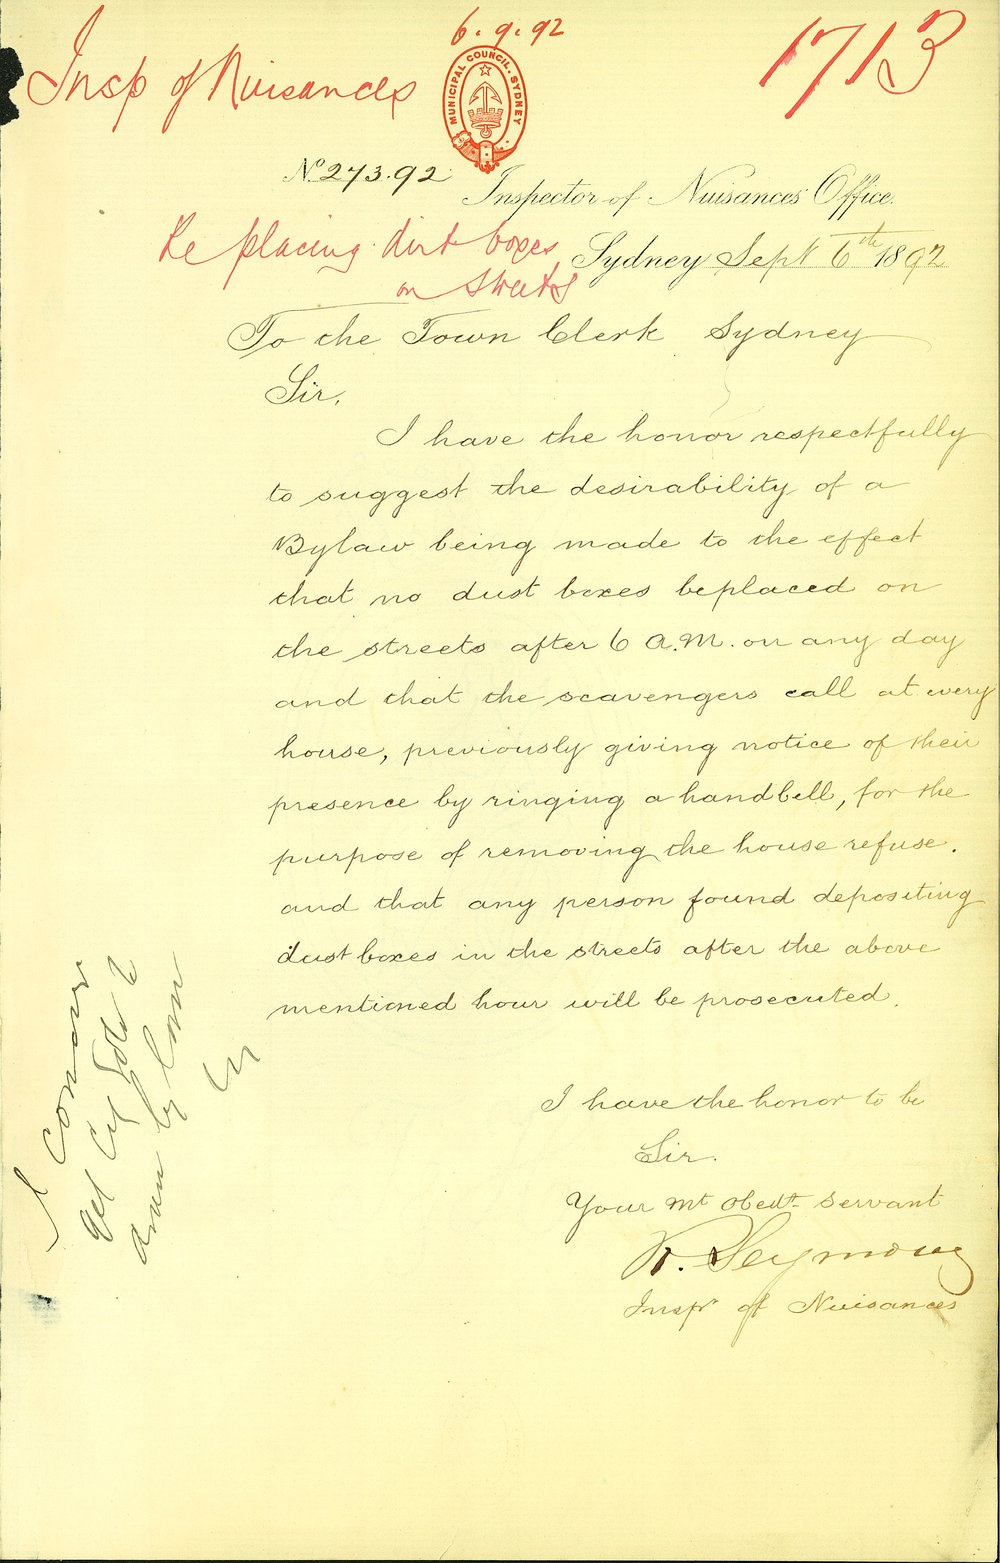 6.9.92
1713
Insp of Nuisances
MUNICIPAL COUNCIL. SYDNEY
No. 273.92
Inspector of Nuisances Office.
Re placing dirt boxes
on streets
Sydney Sept 6th 1892
To the Town Clerk Sydney
Sir,
I have the honor respectfully
to suggest the desirability of a
Bylaw being made to the effect
that no dust boxes be placed on
the streets after 6 A.M. on any day
and that the scavengers call at every
house, previously giving notice of their
presence by ringing a handbell, for the
purpose of removing the house refuse.
and that any person found depositing
dust boxes in the streets after the above
mentioned hour will be prosecuted.
I have the honor to be
Sir.
Your Mt Obedt Servant
R. Seymour
Inspr of Nuisances
I concur
get City
by